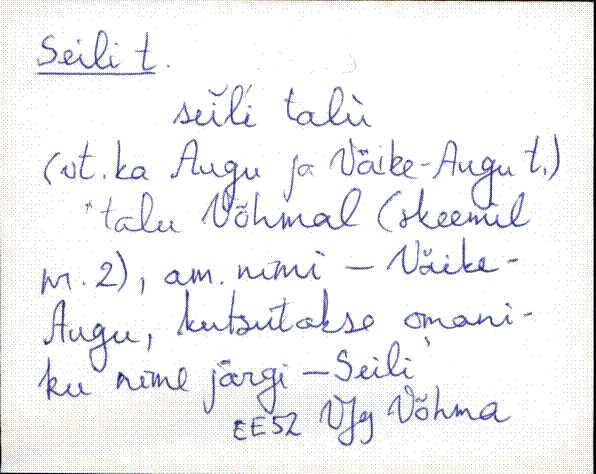 Seili t.
seilì talù
(vt. ka Augu ja Väike-Augu t.)
talu Võhmal (skeemil
nr. 2), am. nimi – Väike-
Augu, kutsutakse omani-
ku nime järgi – Seili
EE52 VJg Võhma